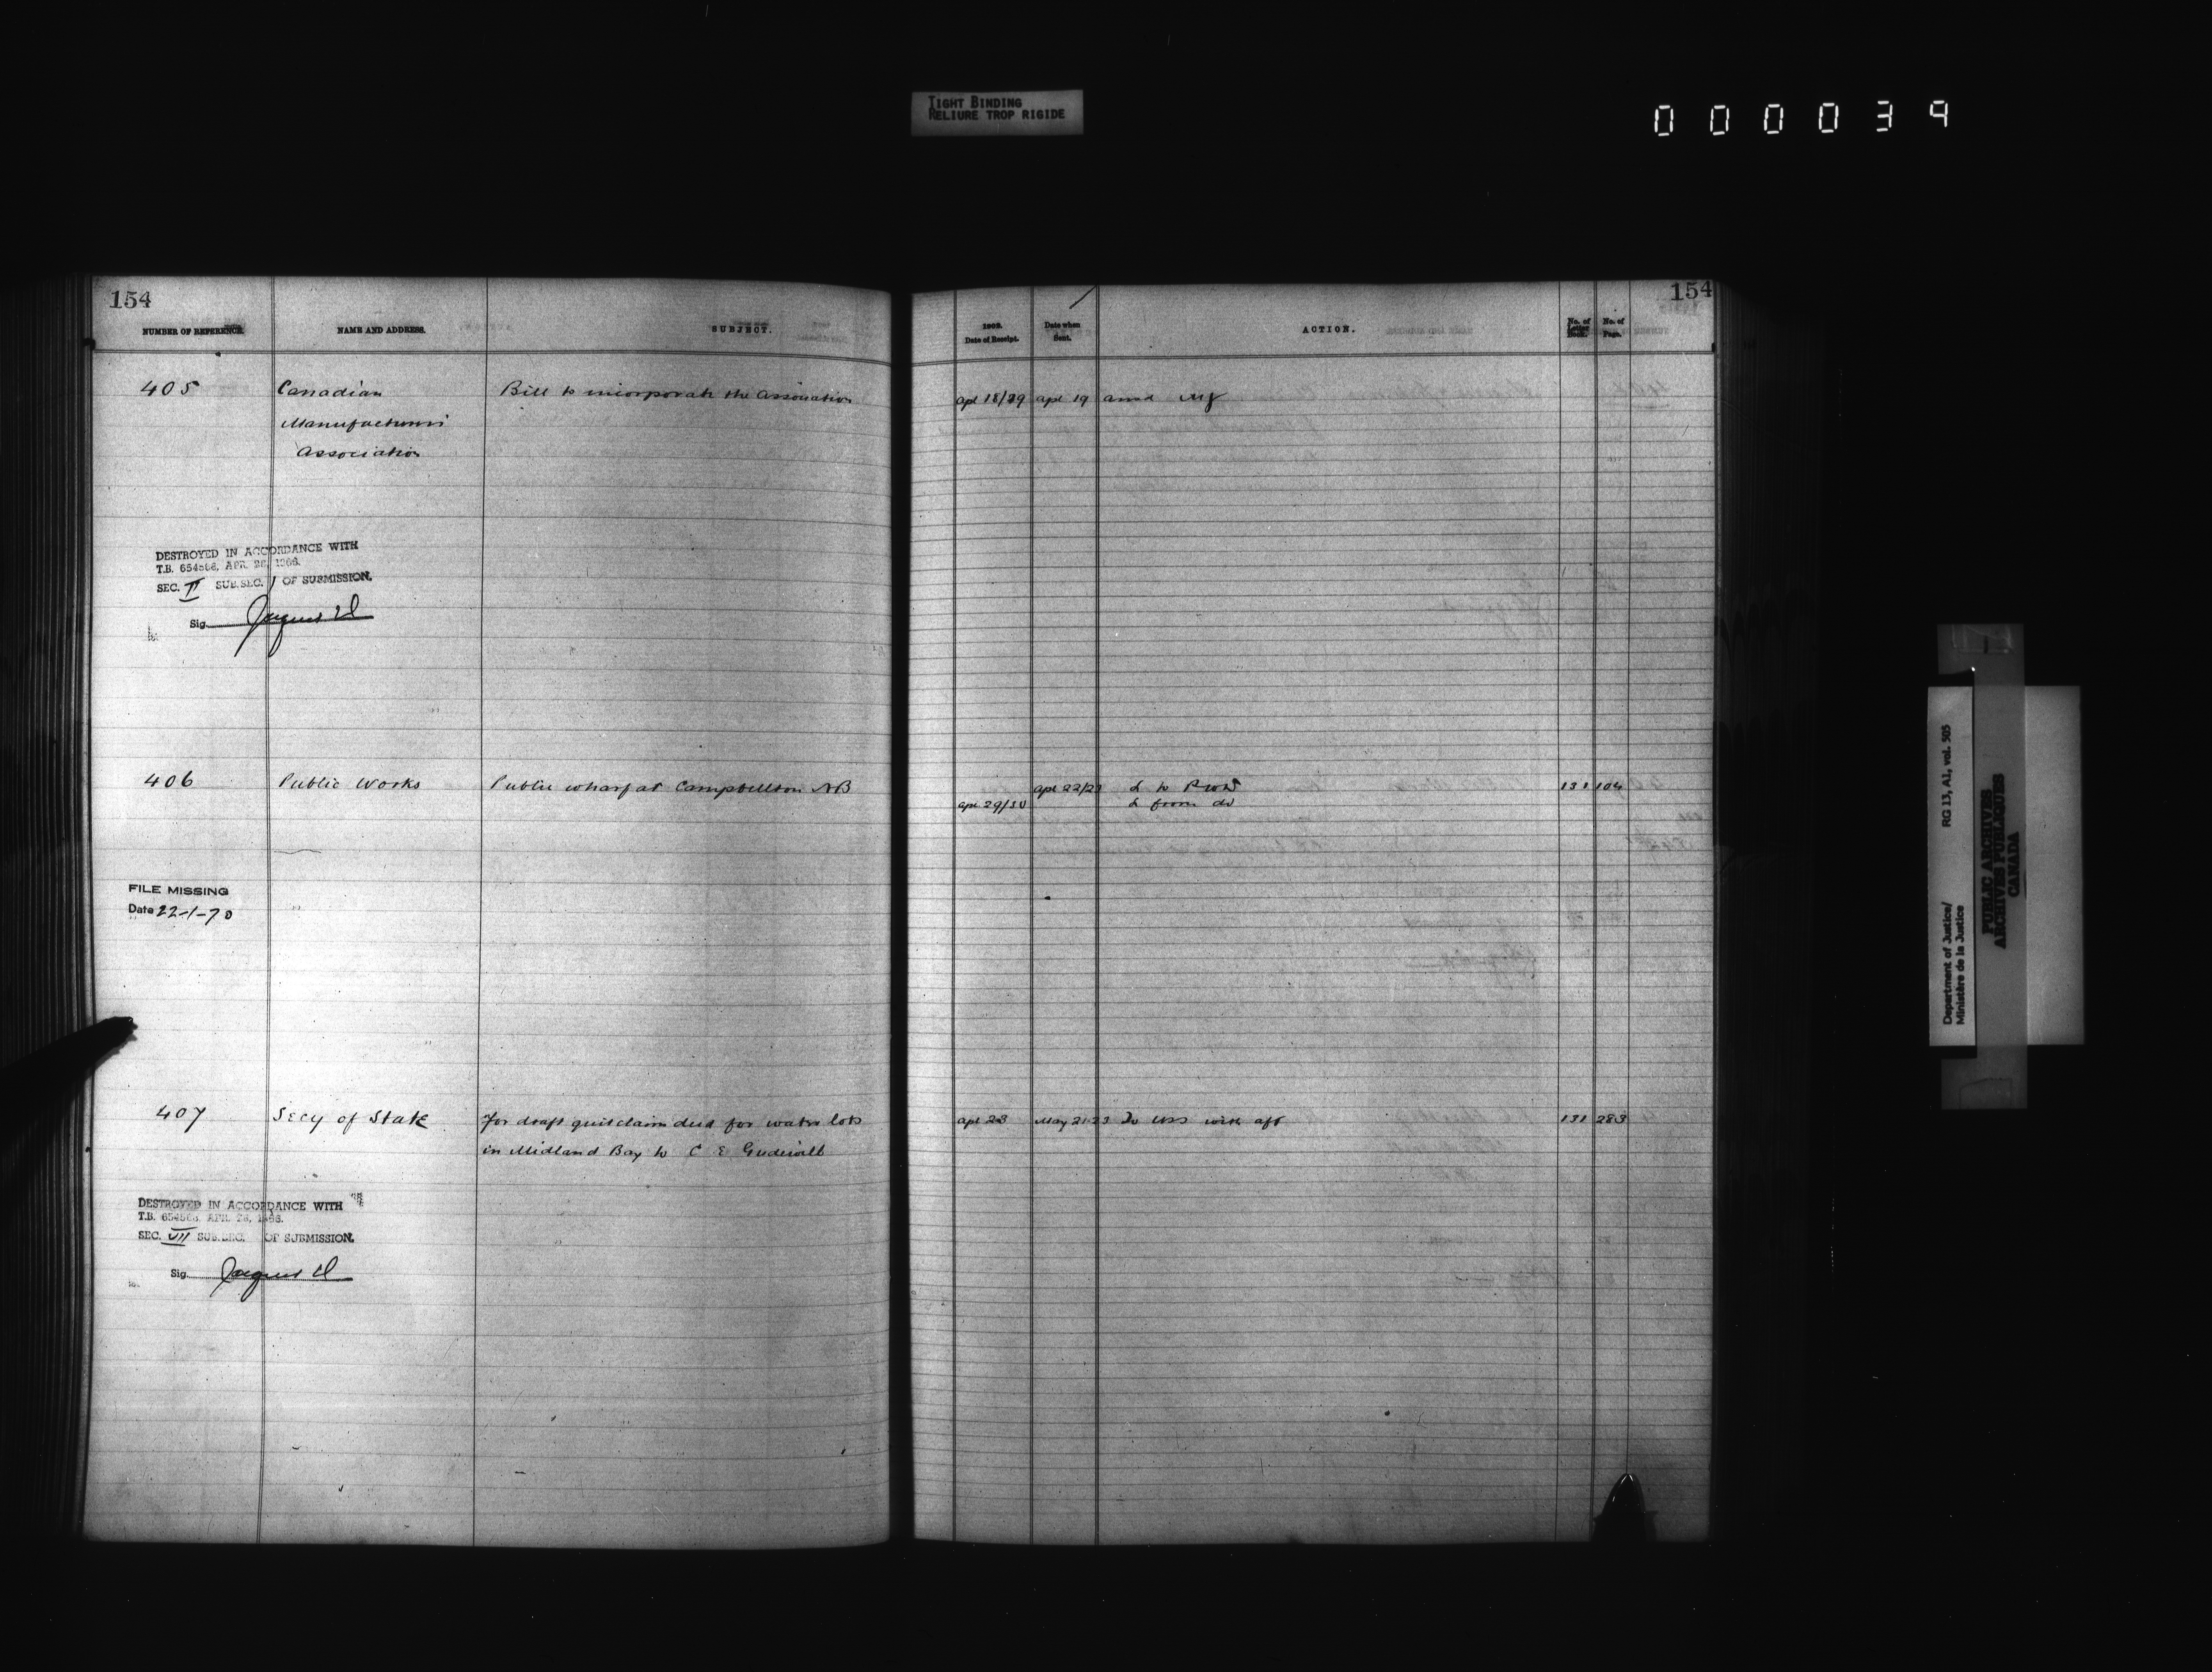 TIGHT BINDING
RELIURE TROP RIGIDE
000039
154
NUMBER OF REFERENCE.
NAME AND ADDRESS.
SUBJECT.
405
Canadian
Manufacturers
Association
Bill to incorporate the Association
DESTROYED IN ACCORDANCE WITH
T.B. 654568, APR. 26, 1966.
SEC. II SUB.SEC. 1 OF SUBMISSION.
Sig.
406
Public Works
Public wharf at Campbellton NB
FILE MISSING
Date 22-1-70
407
Secy of State
For draft quitclaim deed for water lots
in Midland Bay to C E Gudewill
DESTROYED IN ACCORDANCE WITH
T.B. 654568, APR. 26, 1966.
SEC. VII SUB.SEC. OF SUBMISSION.
Sig.
154
Date of Receipt.
Date when
Sent.
ACTION.
No. of
Letter
Book.
No. of
Page.
apl 18/29 apl 19
apl 22/23 L to PWD 131 104
apl 29/30 L from do
apl 23 May 21 23 To USS with aft 131 283
Department of Justice/
Ministère de la Justice
RG 13, A1, vol. 505
PUBLIC ARCHIVES
ARCHIVES PUBLIQUES
CANADA